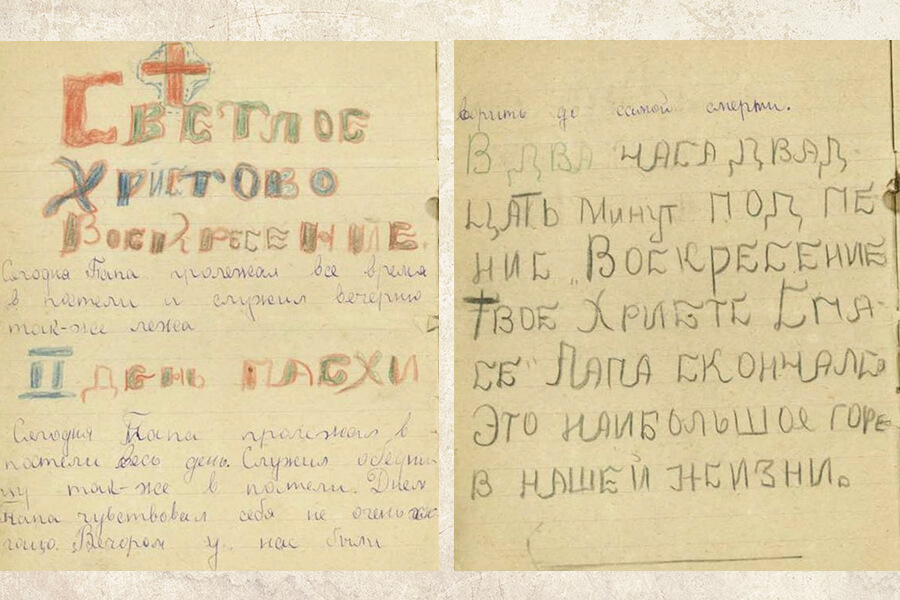 Светлое
Христово
Воскресение.
Сегодня Папа пролежал все время
в постели и служил вечерню
так-же лежа
II день Пасхи
Сегодня Папа пролежал в
постели весь день. Служил обедни-
цу так-же в постели. Днем
Папа чувствовал себя не очень
Вечером у нас были
верить до самой смерти.
В два часа двад-
цать минут под пе-
ние „Воскресение
Твое Христе Спа-
се" Папа скончался
Это наибольшое горе
в нашей жизни.